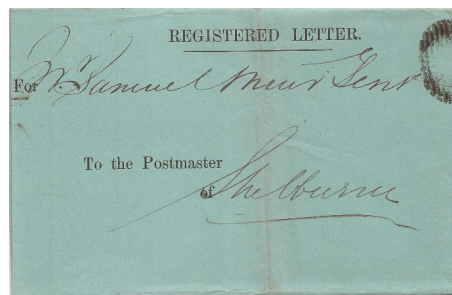 REGISTERED LETTER.
For Mr Samuel Muir Gent
To the Postmaster
of Shelburne